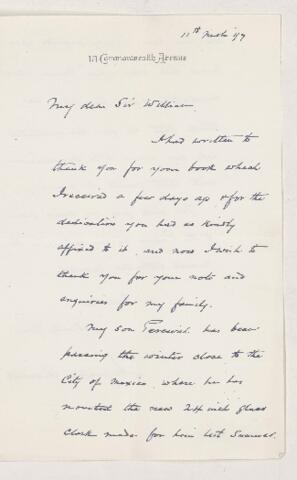 11th March '97
171 Commonwealth Avenue
My dear Sir William.
I had written to
thank you for your book which
I received a few days ago & for the
dedication you had so kindly
affixed to it, and now I wish to
thank you for your note and
enquiries for my family.
My son Percival has been
passing the winter close to the
City of Mexico, where he has
mounted the new 24 inch glass
Clark made for him last Summer.